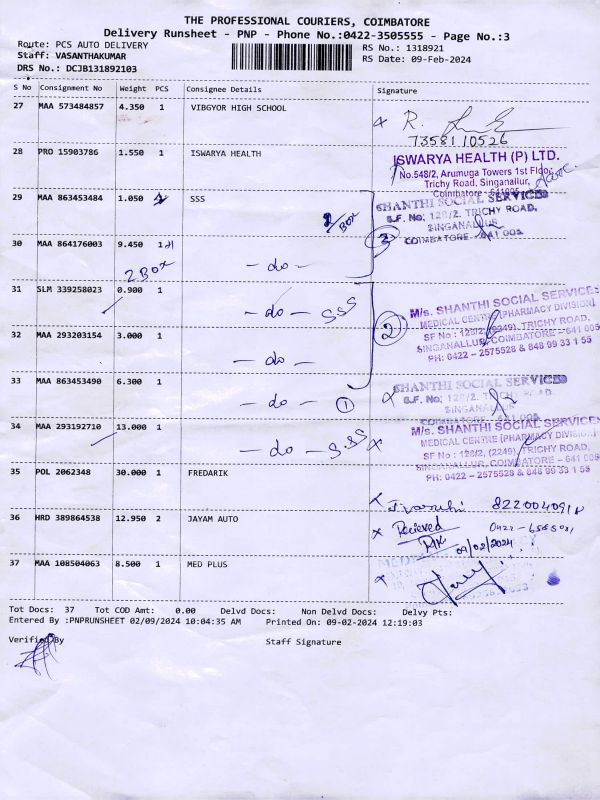 THE PROFESSIONAL COURIERS, COIMBATORE
Delivery Runsheet - PNP - Phone No.:0422-3505555 - Page No.:3
Route: PCS AUTO DELIVERY
RS No.: 1318921
Staff: VASANTHAKUMAR
RS Date: 09-Feb-2024
DRS No.: DCJB131892103
S No Consignment No Weight PCS Consignee Details Signature
27 MAA 573484857 4.350 1 VIBGYOR HIGH SCHOOL
R.
7358110526
28 PRO 15903786 1.550 1 ISWARYA HEALTH
ISWARYA HEALTH (P) LTD.
No.548/2, Arumuga Towers 1st Floor,
Trichy Road, Singanallur,
Coimbatore - 641005
29 MAA 863453484 1.050 SSS
2/BOX
SHANTHI SOCIAL SERVICES
S.F. No: 128/2, TRICHY ROAD,
SINGANALLUR
COIMBATORE - 641 005
30 MAA 864176003 9.450 1
2 BOX
- do -
3
31 SLM 339258023 0.900 1
- do - SSS
2
M/s. SHANTHI SOCIAL SERVICES
MEDICAL CENTRE (PHARMACY DIVISION)
SF No : 128/2, (2249), TRICHY ROAD,
SINGANALLUR, COIMBATORE - 641 005
PH: 0422 - 2575528 & 848 99 33 1 55
32 MAA 293203154 3.000 1
- do -
33 MAA 863453490 6.300 1
- do - 1
SHANTHI SOCIAL SERVICES
S.F. No: 128/2, TRICHY ROAD,
SINGANALLUR
COIMBATORE - 641 005
34 MAA 293192710 13.000 1
- do - SSS
M/s. SHANTHI SOCIAL SERVICES
MEDICAL CENTRE (PHARMACY DIVISION)
SF No : 128/2, (2249), TRICHY ROAD,
SINGANALLUR, COIMBATORE - 641 005
PH: 0422 - 2575528 & 848 99 33 1 55
35 POL 2062348 30.000 1 FREDARIK
36 HRD 389864538 12.950 2 JAYAM AUTO
Recieved
09/02/2024
37 MAA 108504063 8.500 1 MED PLUS
Tot Docs: 37 Tot COD Amt: 0.00 Delvd Docs: Non Delvd Docs: Delvy Pts:
Entered By :PNPRUNSHEET 02/09/2024 10:04:35 AM Printed On: 09-02-2024 12:19:03
Verified By Staff Signature